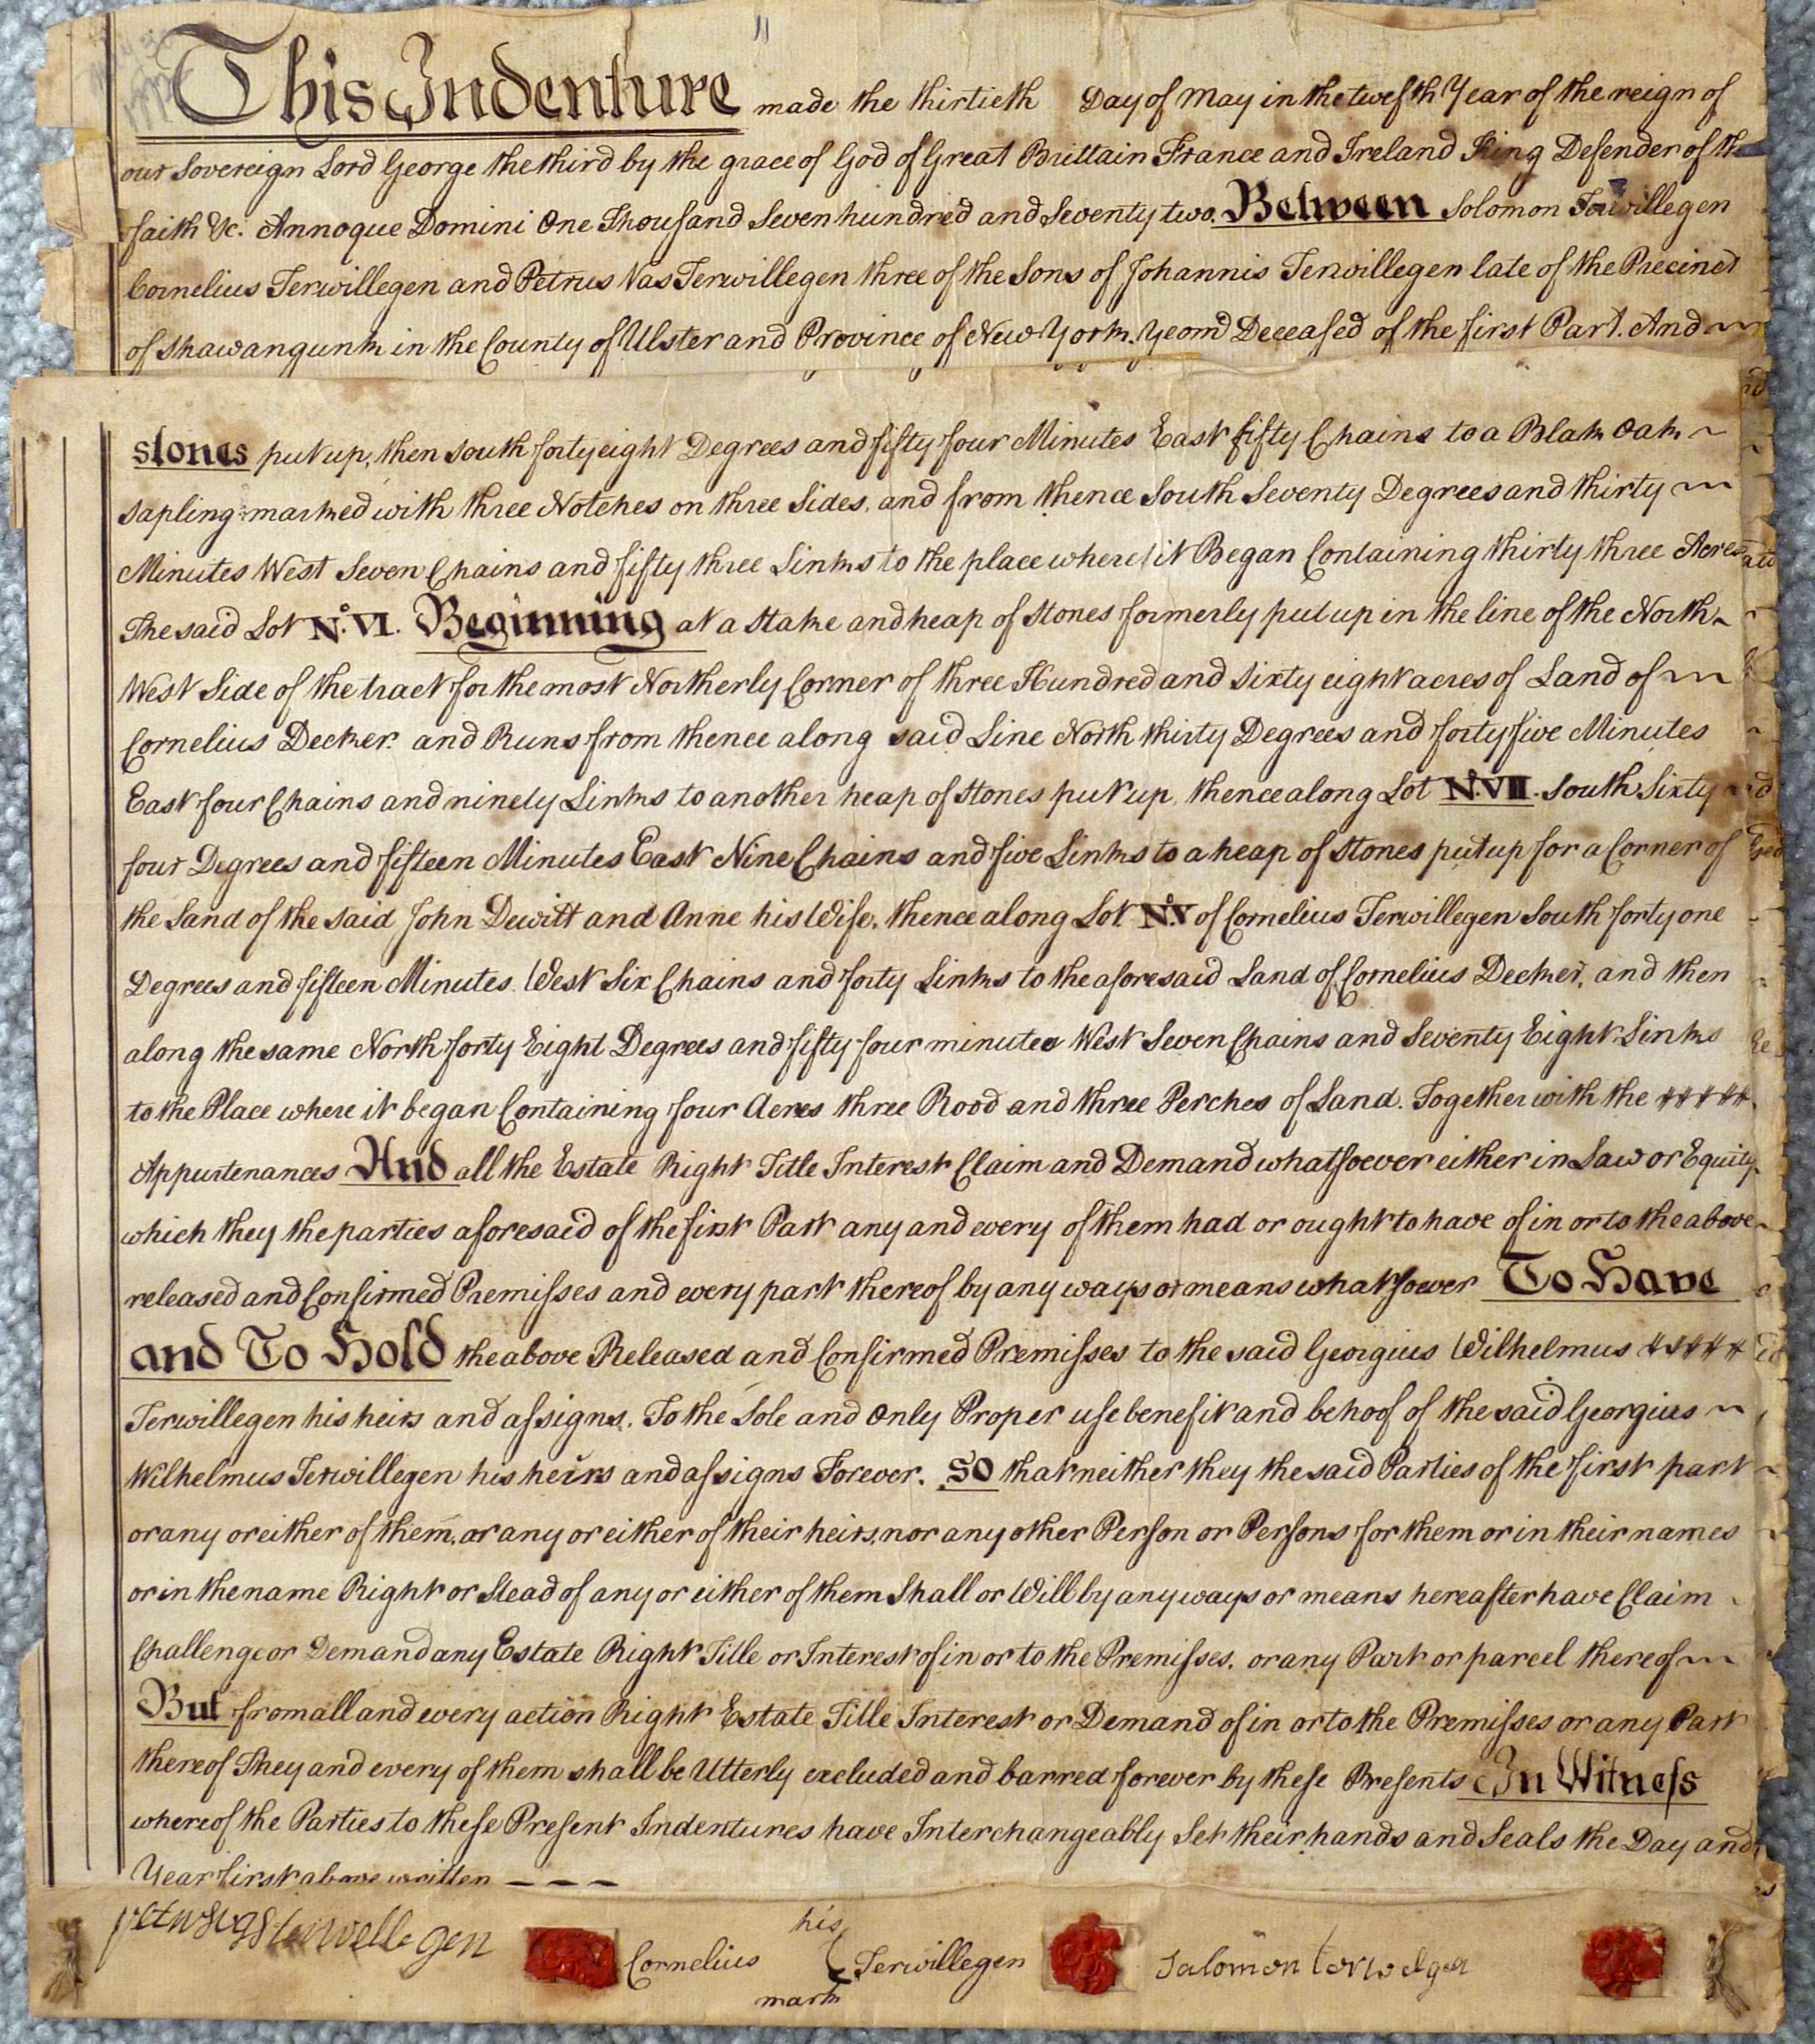 This Indenture made the thirtieth Day of May in the twelfth Year of the reign of
our Sovereign Lord George the third by the grace of God of Great Brittain France and Ireland King Defender of the
faith &c. Annoque Domini One Thousand Seven hundred and Seventy two. Between Solomon Terwillegen
Cornelius Terwillegen and Petrus Vas Terwillegen three of the Sons of Johannis Terwillegen late of the Precinct
of Shawangunk in the County of Ulster and Province of New York. Yeom Deceased of the first Part. And
stones put up, then South forty eight Degrees and fifty four Minutes East fifty Chains to a Blak Oak
sapling marked with three Notches on three Sides, and from thence South Seventy Degrees and thirty
Minutes West Seven Chains and fifty three Links to the place where it Began Containing thirty three Acres
The said Lot No. VI. Beginning at a Stake and heap of Stones formerly put up in the line of the North
West Side of the tract for the most Northerly Corner of three Hundred and Sixty eight acres of Land of
Cornelius Decker. and Runs from thence along said Line North thirty Degrees and forty five Minutes
East four Chains and ninety Links to another heap of Stones put up, thence along Lot No. VII. South Sixty
four Degrees and fifteen Minutes East Nine Chains and five Links to a heap of Stones put up for a Corner of
the Land of the said John Dewitt and Anne his Wife, thence along Lot No. V of Cornelius Terwillegen South forty one
Degrees and fifteen Minutes West Six Chains and forty Links to the aforesaid Land of Cornelius Decker, and then
along the same North forty Eight Degrees and fifty four minutes West Seven Chains and Seventy Eight Links
to the Place where it began Containing four Acres three Rood and three Perches of Land. Together with the
Appurtenances And all the Estate Right Title Interest Claim and Demand whatsoever either in Law or Equity
which they the parties aforesaid of the first Part any and every of them had or ought to have of in or to the above
released and Confirmed Premisses and every part thereof by any ways or means whatsoever To Have
and To Hold the above Released and Confirmed Premisses to the said Georgius Wilhelmus
Terwillegen his heirs and assigns. To the Sole and Only Proper use benefit and behoof of the said Georgius
Wilhelmus Terwillegen his heirs and assigns Forever. So that neither they the said Parties of the first part
or any or either of them, or any or either of their heirs, nor any other Person or Persons for them or in their names
or in the name Right or Stead of any or either of them Shall or Will by any ways or means hereafter have Claim
Challenge or Demand any Estate Right Title or Interest of in or to the Premisses, or any Part or parcel thereof
But from all and every action Right Estate Title Interest or Demand of in or to the Premisses or any Part
thereof They and every of them shall be Utterly excluded and barred forever by these Presents In Witness
whereof the Parties to these Present Indentures have Interchangeably Set their hands and Seals the Day and
Year first above written
his
Cornelius Terwillegen
mark